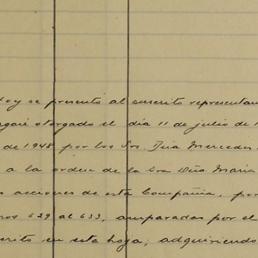 Hoy se presentó al suscrito representan
pagaré otorgado el día 11 de julio de 1
de 1948 por los Srs. Dña Mercedes
a la orden de la Sra Dña Maria
s acciones de esta Compañia, por
ros 629 al 633, amparadas por el
crito en esta hoja, adquiriendo